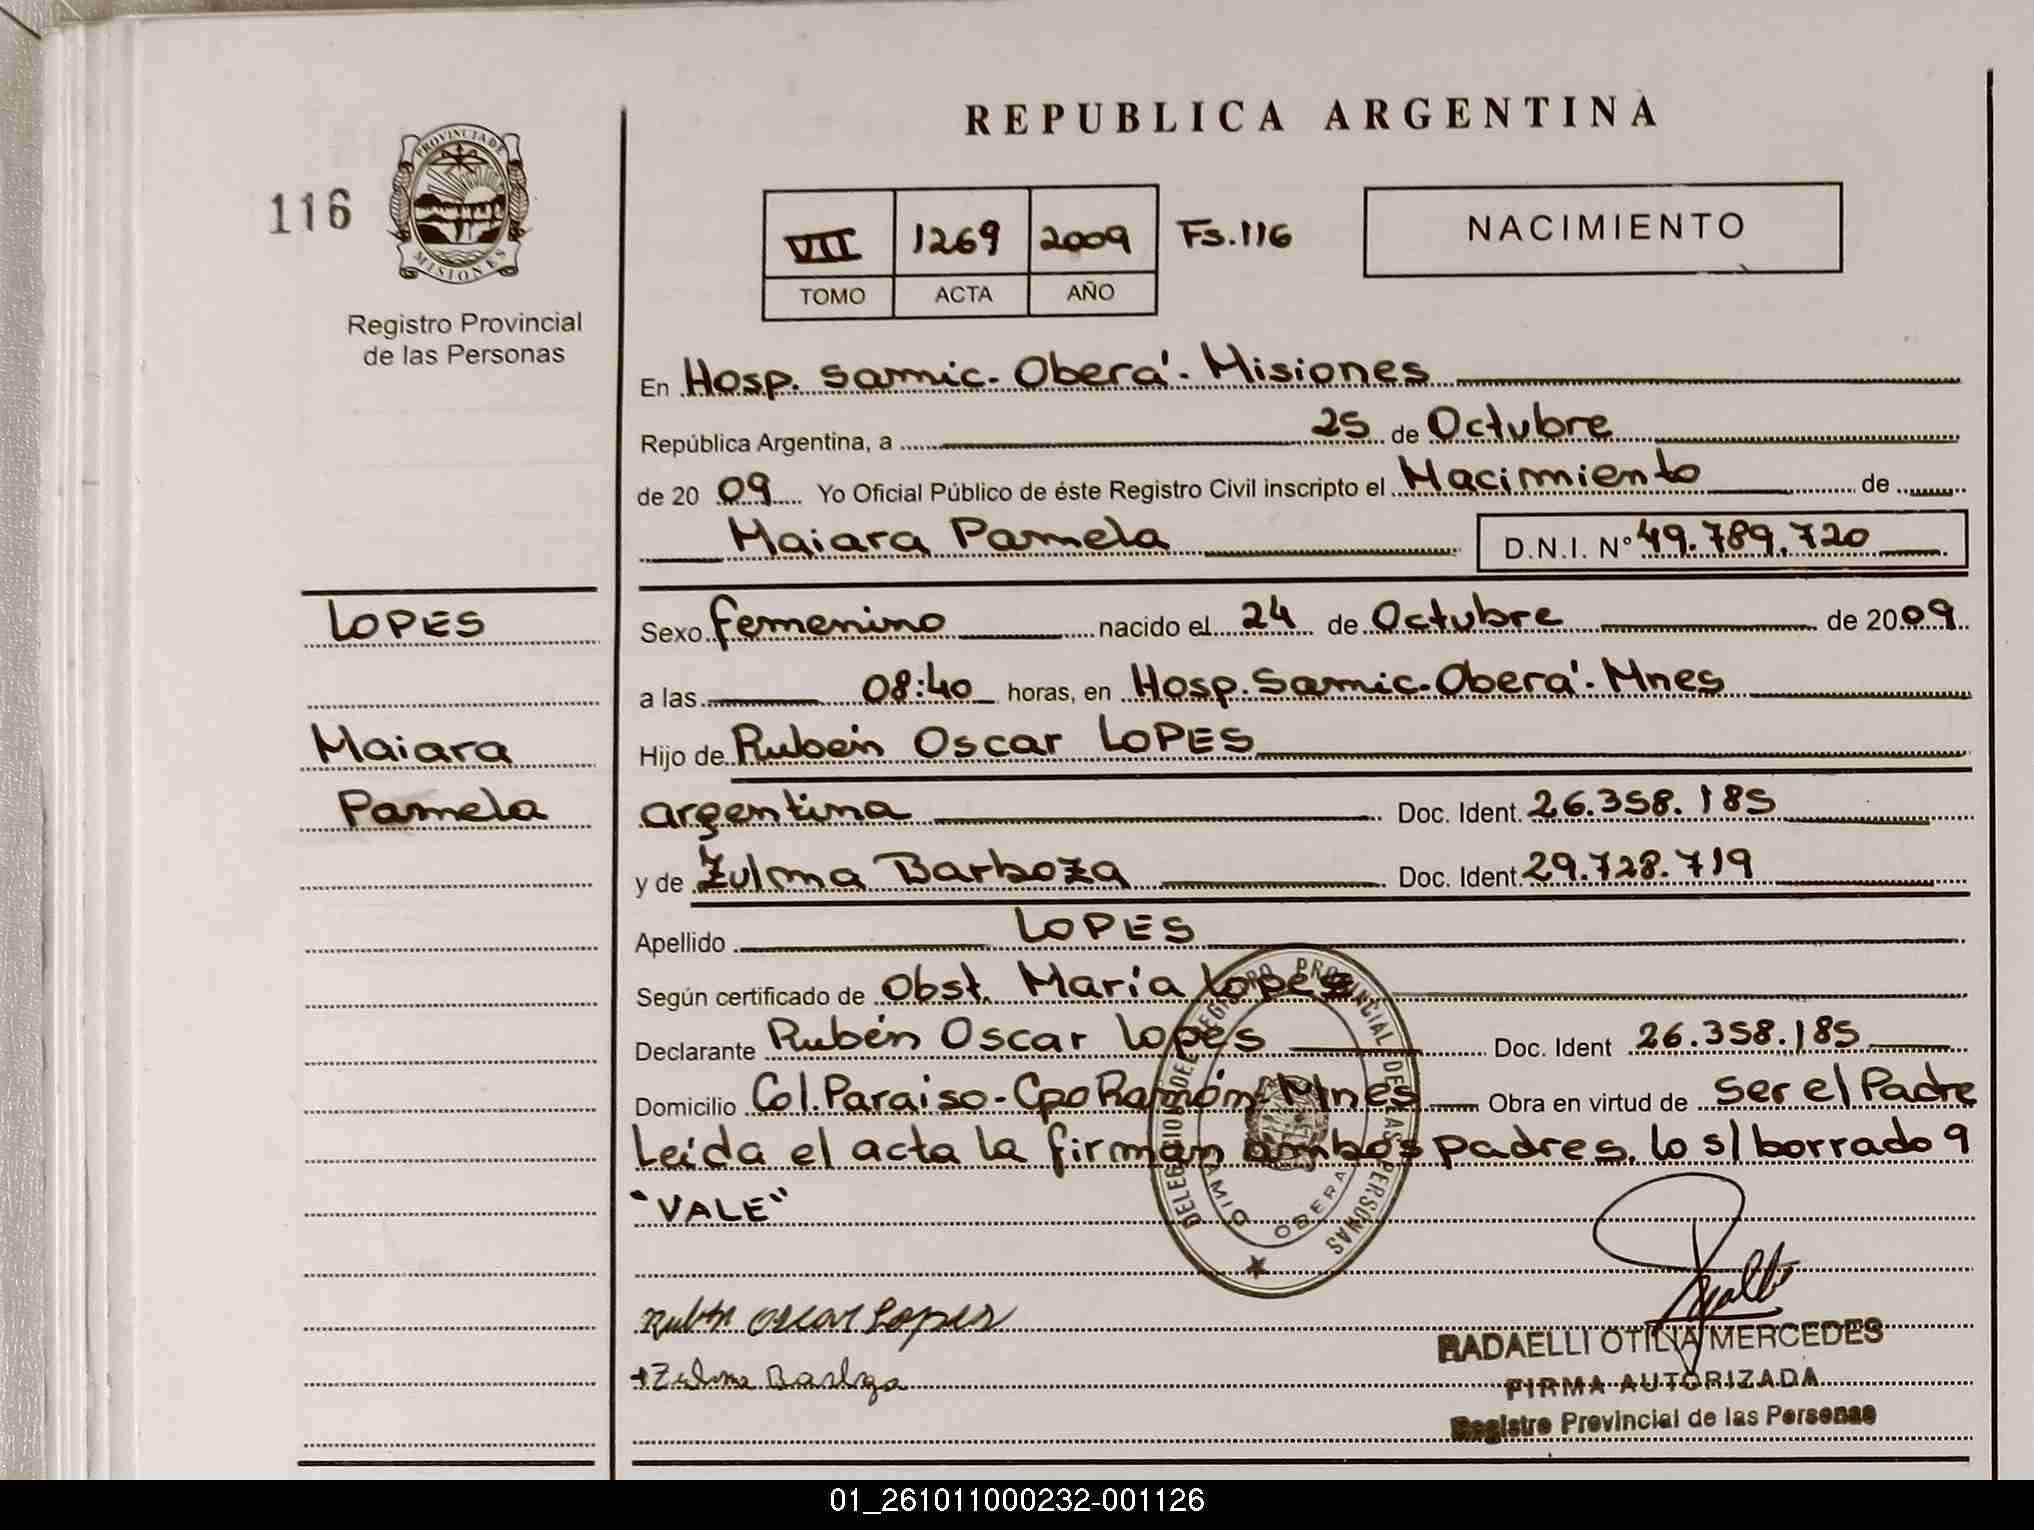 REPUBLICA ARGENTINA
116
PROVINCIA DE
MISIONES
Registro Provincial
de las Personas
VII 1269 2009 Fs.116
TOMO ACTA AÑO
NACIMIENTO
En Hosp. Samic. Oberá. Misiones
República Argentina, a 25 de Octubre
de 20 09 Yo Oficial Público de éste Registro Civil inscripto el Nacimiento de
Maiara Pamela D.N.I. N° 49.789.720
LOPES
Maiara
Pamela
Sexo femenino nacido el 24 de Octubre de 2009
a las 08:40 horas, en Hosp. Samic. Oberá. Mnes
Hijo de Rubén Oscar LOPES
argentina Doc. Ident. 26.358.185
y de Zulma Barboza Doc. Ident. 29.728.719
Apellido LOPES
Según certificado de Obst. María Lopez
Declarante Rubén Oscar Lopes Doc. Ident 26.358.185
Domicilio Col. Paraiso - Cpo Ramón - Mnes Obra en virtud de Ser el Padre
Leída el acta la firman ambos padres. lo s/ borrado 9
"VALE"
DELEGACION DEL REGISTRO PROVINCIAL DE LAS PERSONAS
OBERA
Rubén Oscar Lopes
Zulma Barboza
RADAELLI OTILIA MERCEDES
FIRMA AUTORIZADA
Registro Provincial de las Personas
01_261011000232-001126